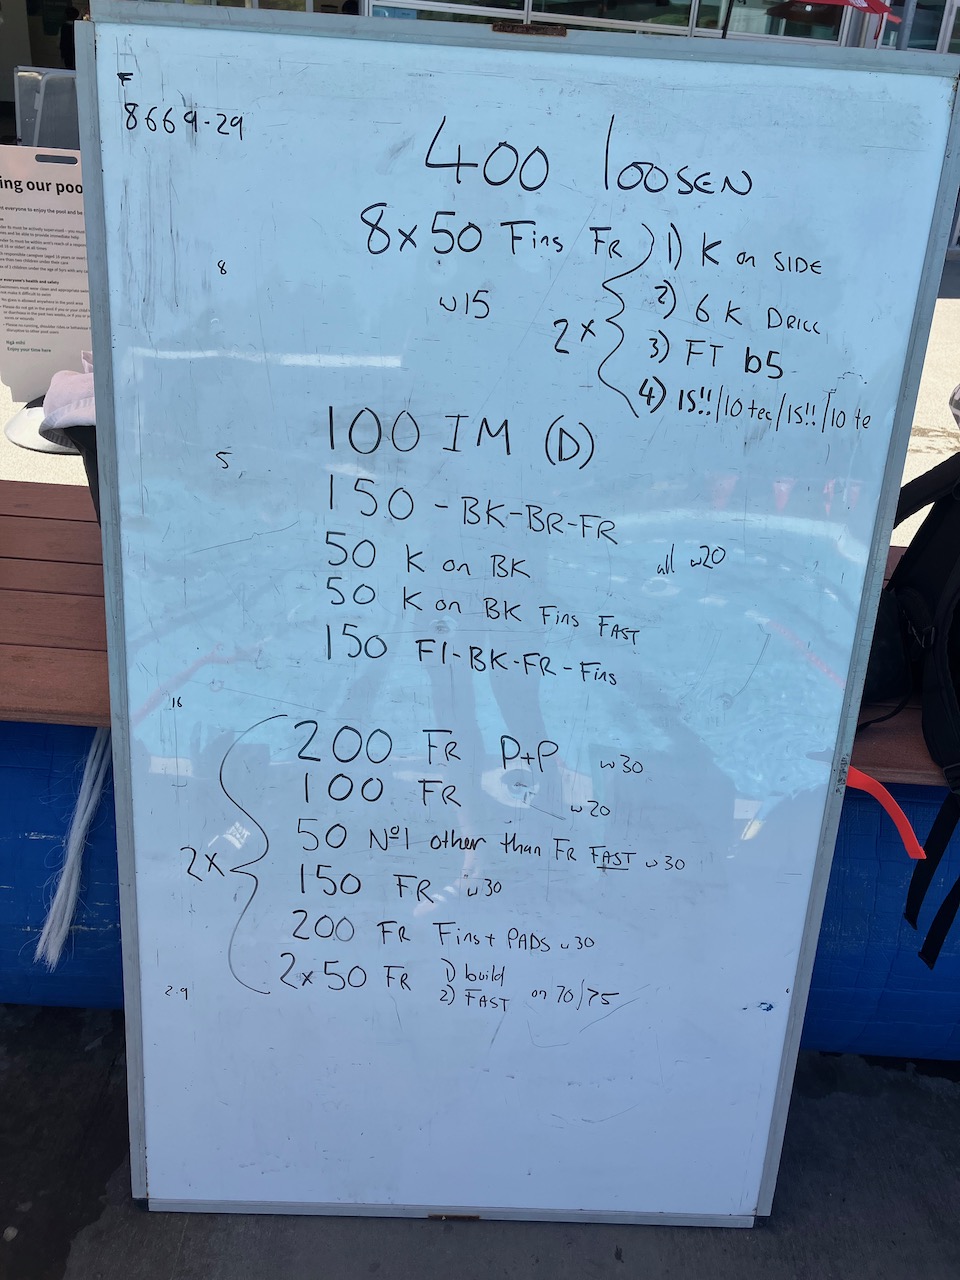 F
8669-29
400 loosEN
8x50 Fins FR
1) K on SIDE
8
w15
2x
2) 6 K DRILL
3) FT b5
4) 15!!/10 tec/15!!/10 te
100 IM (D)
5
150 - BK-BR-FR
50 K on BK
all w20
50 K on BK Fins FAST
150 FI-BK-FR-Fins
16
200 FR P+P w30
100 FR w20
50 Nº1 other than FR FAST w30
2x
150 FR w30
200 FR Fins+ PADS w30
2x50 FR 1) build
2) FAST on 70/75
2.9
ing our poo
everyone's health and safety
Ngā mihi
Enjoy your time here